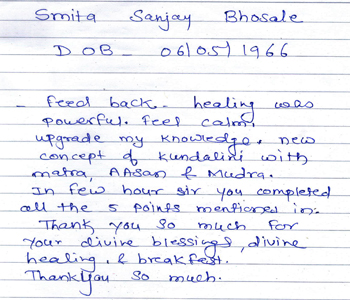 Smita Sanjay Bhosale
DOB - 06/05/1966
- Feed back - healing was
powerful. Feel calm,
upgrade my knowledge. new
concept of kundalini with
matra, AAsan & Mudra.
In few hour sir you completed
all the 5 points mentioned in:
Thank you so much for
your divine blessings, divine
healing, & breakfest.
Thankyou so much.